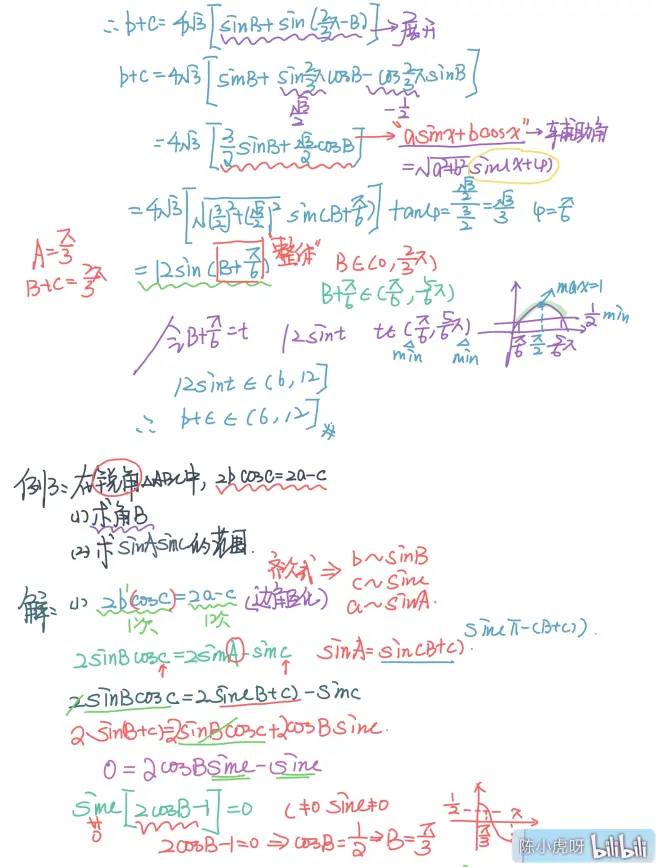 ∴ b+c=4√3[sinB+sin(2/3π-B)]→展开
b+c=4√3[sinB+sin2/3πcosB-cos2/3πsinB]
√3/2 -1/2
=4√3[3/2sinB+√3/2cosB]→"asinx+bcosx"→辅助角
=√a²+b² sin(x+φ)
=4√3[√(3/2)²+(√3/2)² sin(B+π/6)] tanφ=(√3/2)/(3/2)=√3/3 φ=π/6
A=π/3
B+C=2π/3
=12sin(B+π/6) "整体" B∈(0,2/3π)
B+π/6∈(π/6,5/6π)
令B+π/6=t 12sint t∈(π/6,5/6π)
min min
max=1
1/2 min
π/6 π/2 5/6π
12sint∈(6,12]
∴ b+c∈(6,12]
例3:在锐角△ABC中,2bcosC=2a-c
(1)求角B
(2)求sinAsinC的范围.
解:(1) 2b(cosC)=2a-c (边角互化)
1次 1次
齐次式⇒ b~sinB
c~sinc
a~sinA.
2sinBcosC=2sinA-sinC sinA=sin(B+C) sin(π-(B+C)).
2sinBcosC=2sin(B+C)-sinC
2sin(B+C)=2sinBcosC+2cosBsinC.
0=2cosBsinC-sinC
sinC[2cosB-1]=0 C≠0 sinC≠0
0
2cosB-1=0 ⇒cosB=1/2⇒B=π/3
1/2 π/3 π
陈小虎呀 bilibili